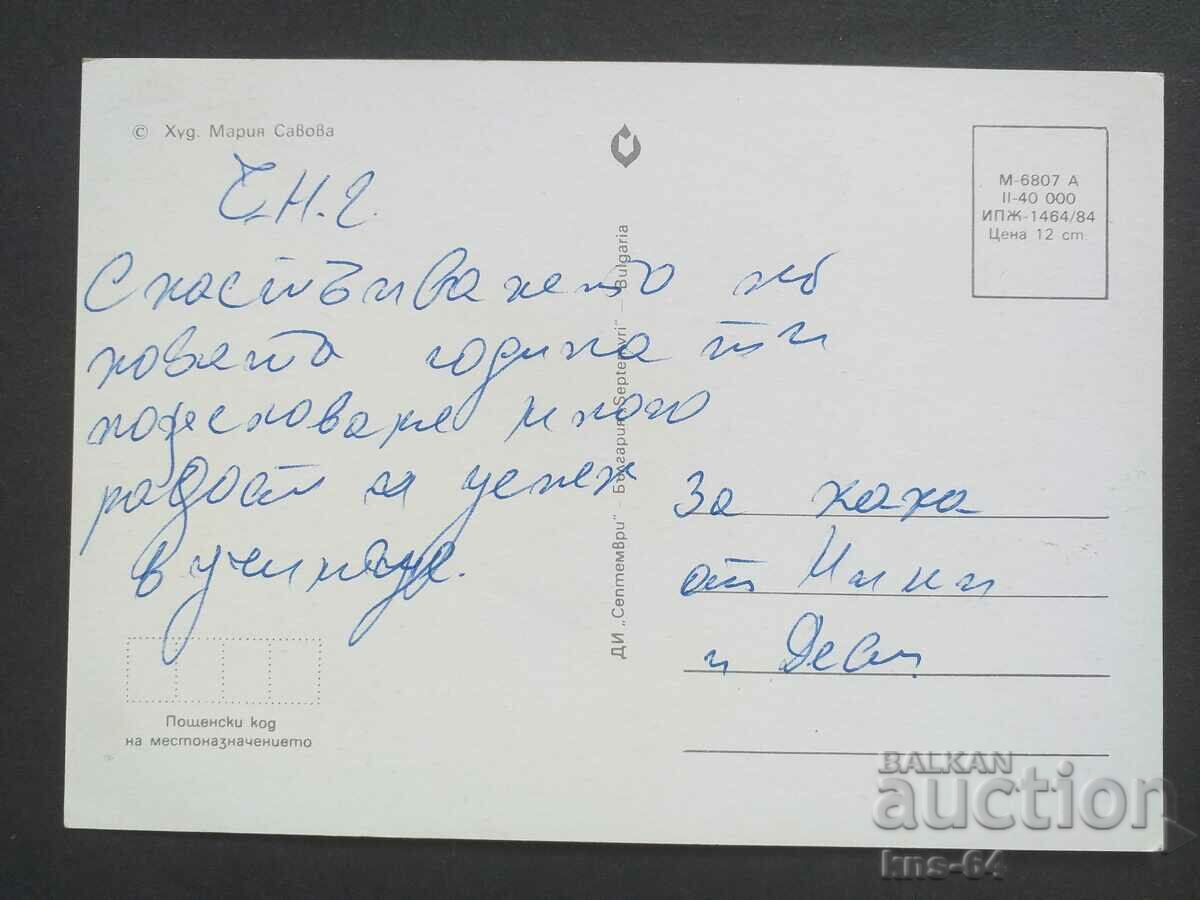 © Худ. Мария Савова
Ч.Н.Г.
С настъпването на
новата година ти
пожелаваме много
радост и успех
в училище.
Пощенски код
на местоназначението
ДИ „Септември" - България „Septemvri" — Bulgaria
М-6807 А
II-40 000
ИПЖ-1464/84
Цена 12 ст.
За кака
от Ники
и Деси
BALKAN
auction
kns-64